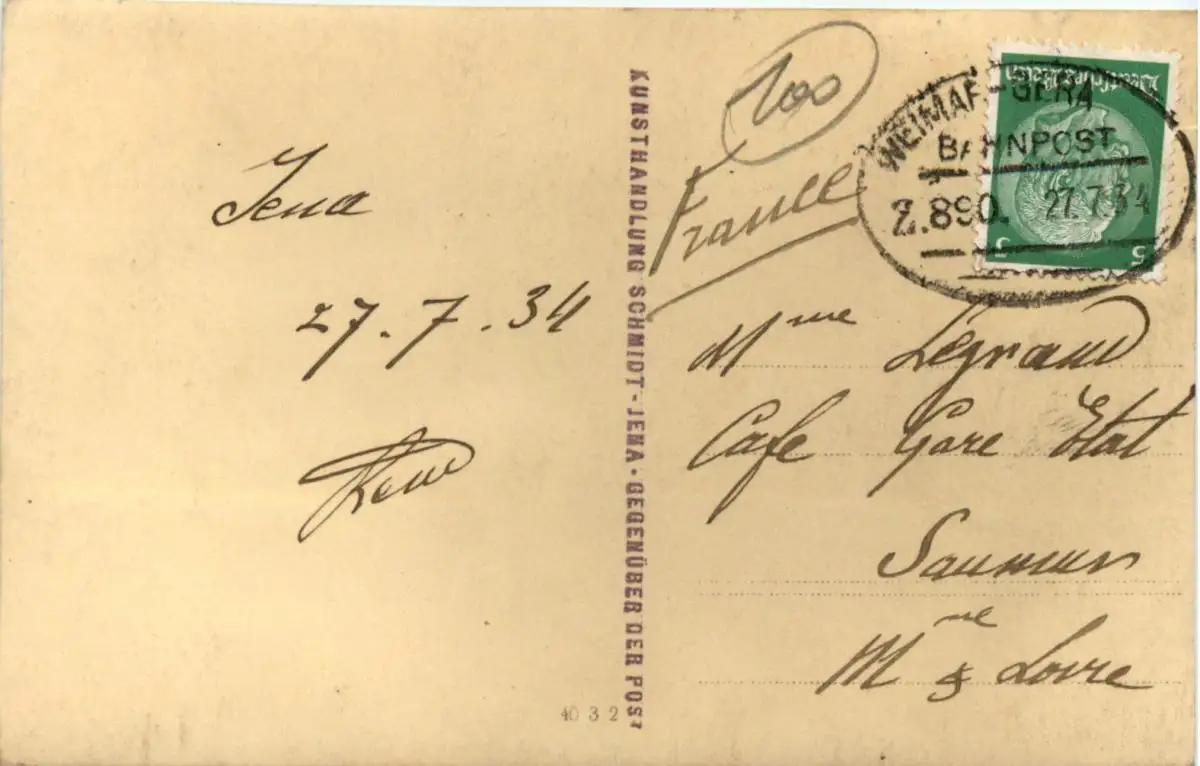 Jena
27.7.34
KUNSTHANDLUNG SCHMIDT-JENA·GEGENÜBER DER POST
40 3 2
100
France
WEIMAR-GERA
BAHNPOST
Z.890. 27.7.34
Deutsches Reich
5 5
Mme Legrand
Cafe Gare Etat
Saumur
Mne & Loire